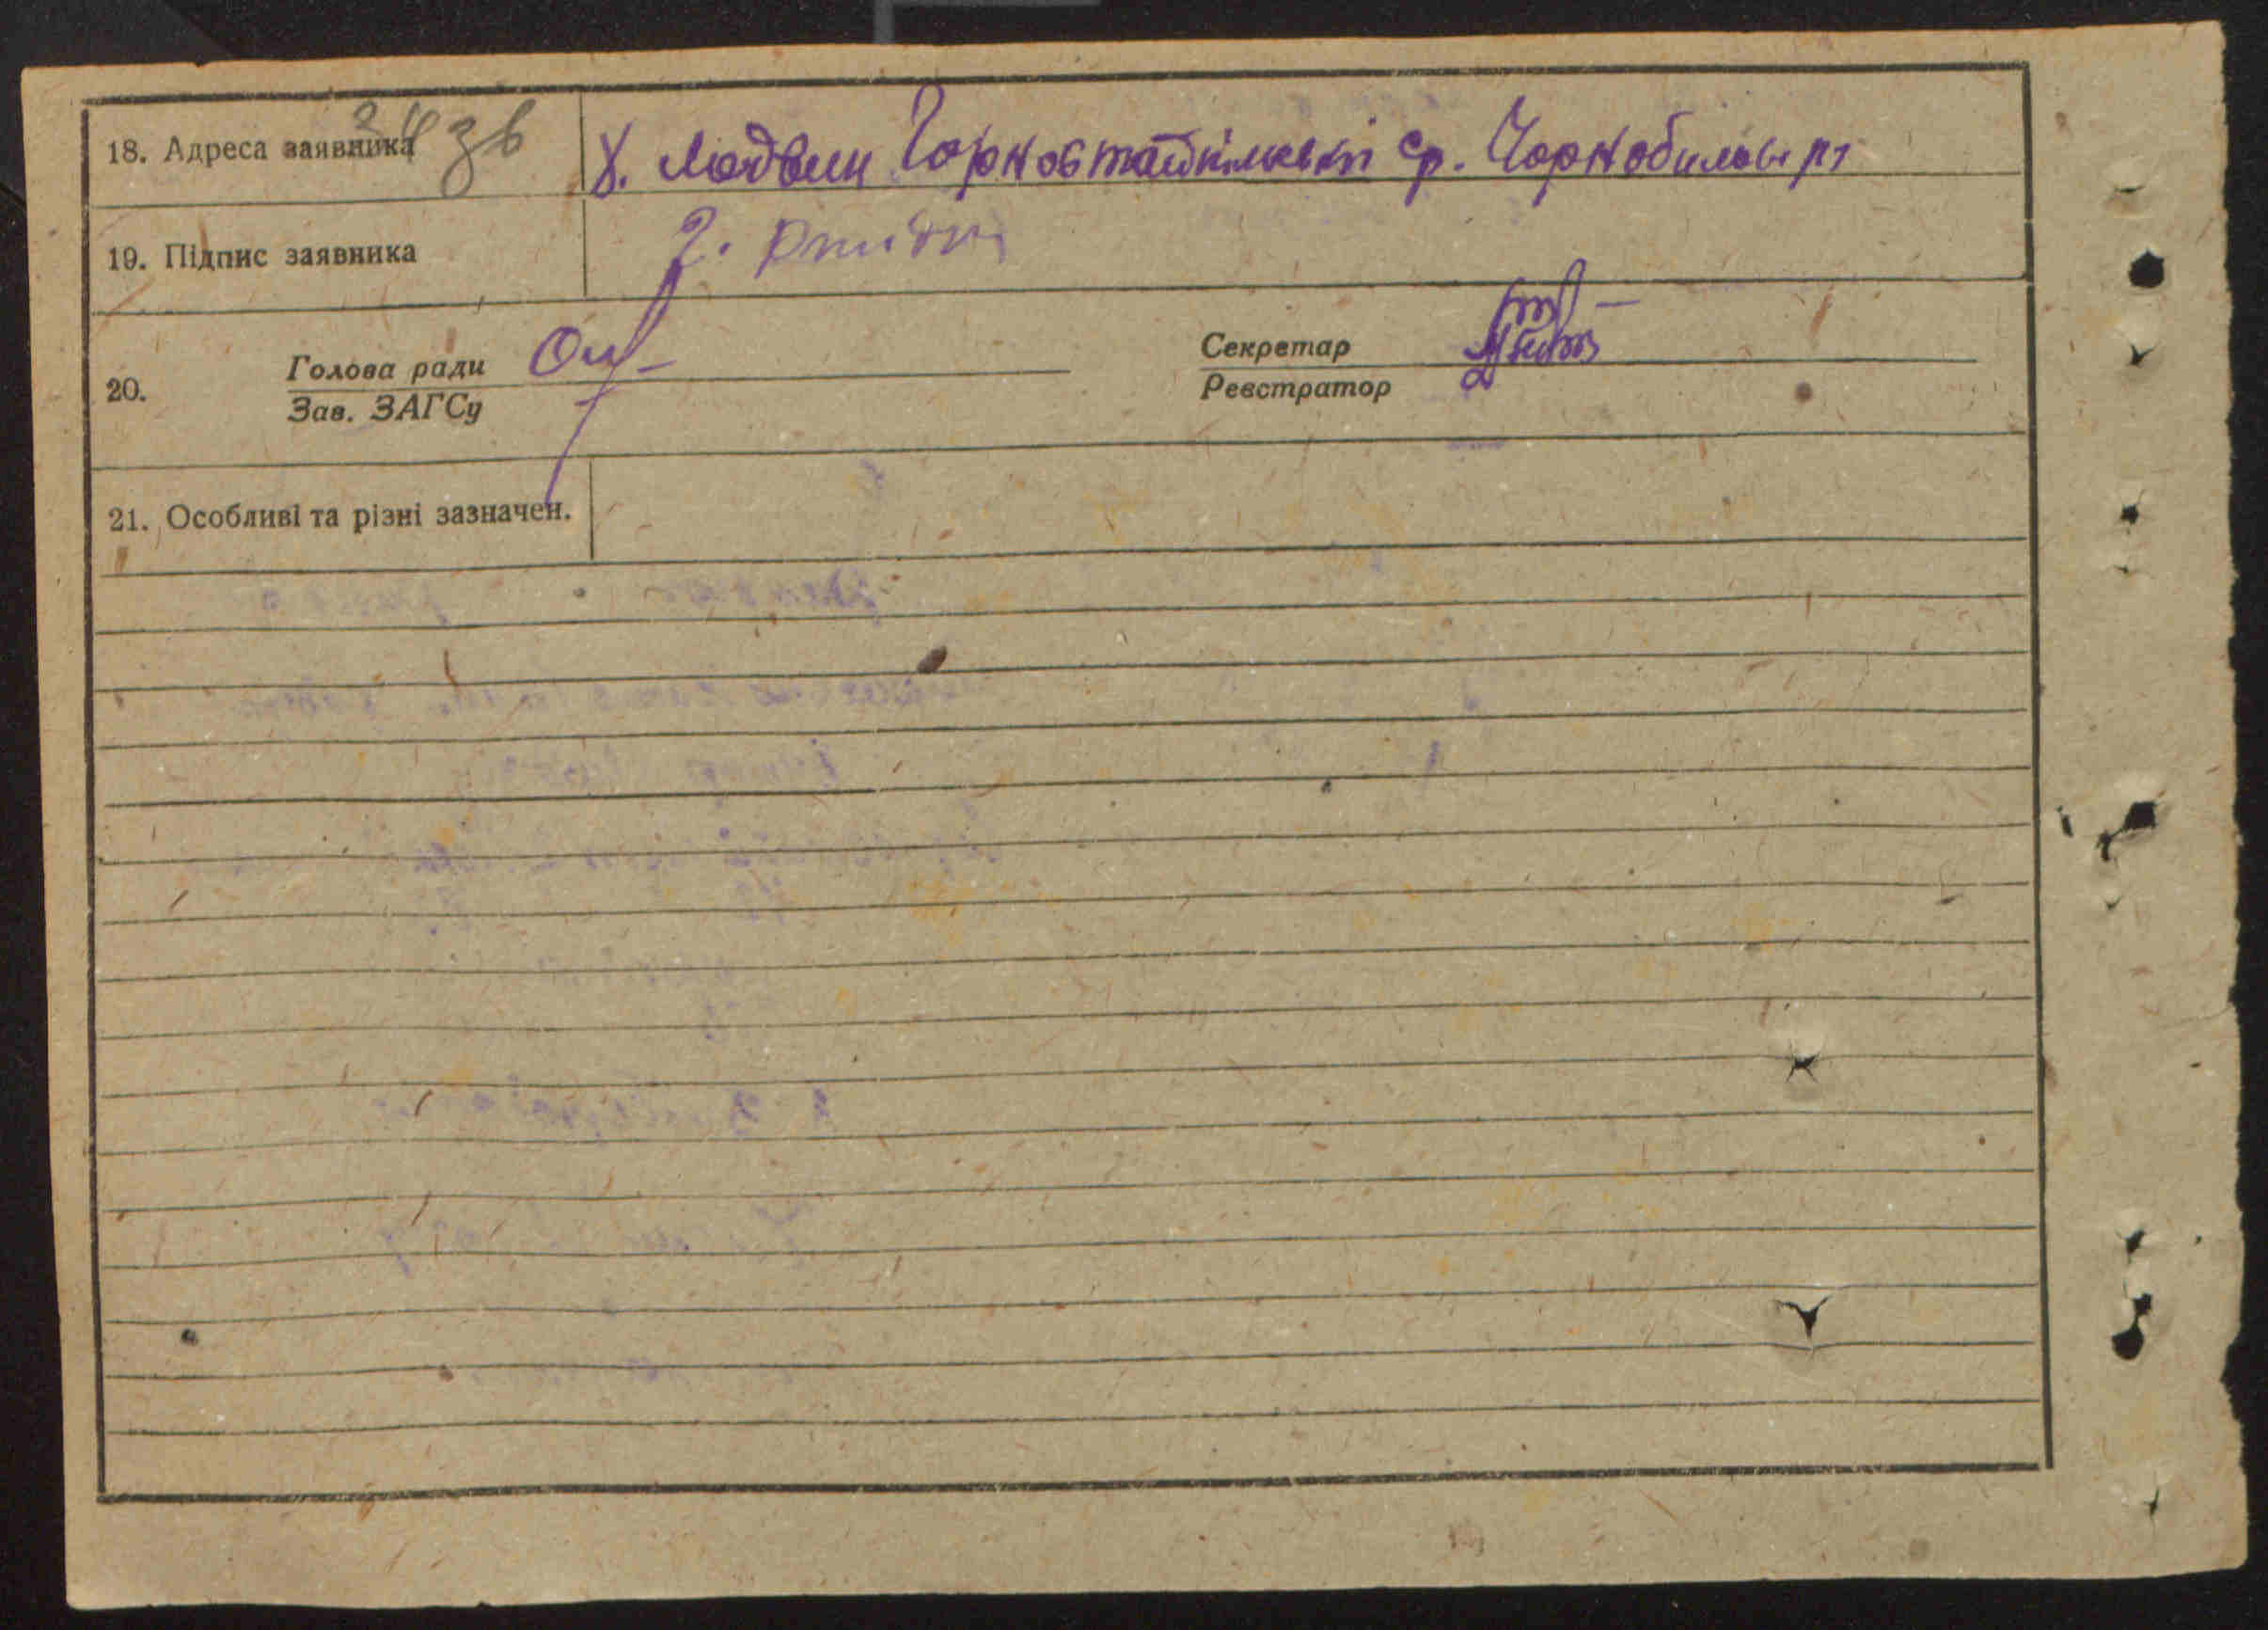 18. Адреса заявника 34 зв Х. Людвин Горностайпільські ср. Чорнобильськ рт
19. Підпис заявника
20. Голова ради Секретар
Зав. ЗАГСу Реєстратор
21. Особливі та різні зазначен.